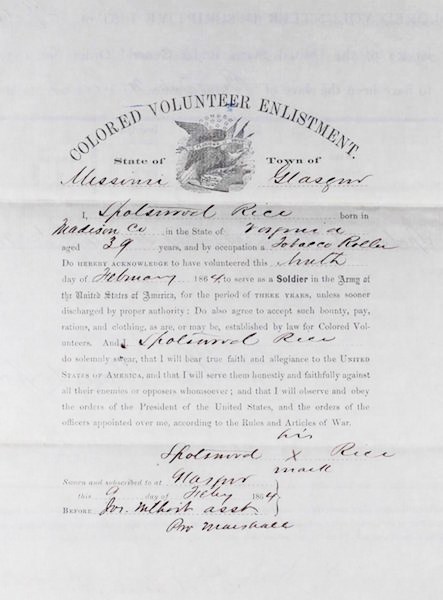 COLORED VOLUNTEER ENLISTMENT.
State of Town of
Missouri Glasgow
I, Spotswood Rice born in
Madison Co in the State of Virginia
aged 39 years, and by occupation a Tobacco Roller
Do HEREBY ACKNOWLEDGE to have volunteered this Ninth
day of February 1864 to serve as a Soldier in the Army of
the United States of America, for the period of THREE YEARS, unless sooner
discharged by proper authority: Do also agree to accept such bounty, pay,
rations, and clothing, as are, or may be, established by law for Colored Vol-
unteers. And I, Spotswood Rice
do solemnly swear, that I will bear true faith and allegiance to the UNITED
STATES OF AMERICA, and that I will serve them honestly and faithfully against
all their enemies or opposers whomsoever; and that I will observe and obey
the orders of the President of the United States, and the orders of the
officers appointed over me, according to the Rules and Articles of War.
his
Spotswood X Rice
mark
Sworn and subscribed to at Glasgow
this 9 day of Feby 1864
BEFORE asst
Pro Marshall